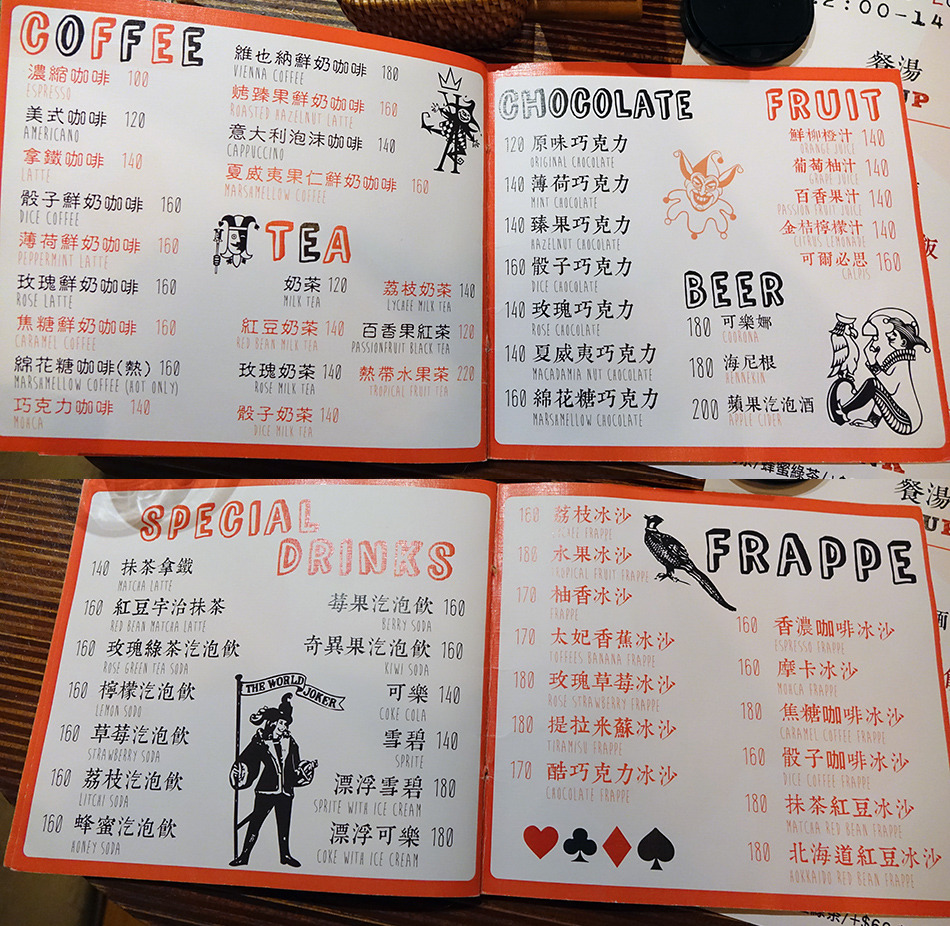 COFFEE
濃縮咖啡 100
ESPRESSO
美式咖啡 120
AMERICANO
拿鐵咖啡 140
LATTE
骰子鮮奶咖啡 160
DICE COFFEE
薄荷鮮奶咖啡 160
PEPPERMINT LATTE
玫瑰鮮奶咖啡 160
ROSE LATTE
焦糖鮮奶咖啡 160
CARAMEL COFFEE
綿花糖咖啡(熱) 160
MARSHMELLOW COFFEE (HOT ONLY)
巧克力咖啡 140
MOHCA
維也納鮮奶咖啡 180
VIENNA COFFEE
烤臻果鮮奶咖啡 160
ROASTED HAZELNUT LATTE
意大利泡沫咖啡 140
CAPPUCCINO
夏威夷果仁鮮奶咖啡 160
MARSHMELLOW COFFEE
TEA
奶茶 120
MILK TEA
紅豆奶茶 140
RED BEAN MILK TEA
玫瑰奶茶 140
ROSE MILK TEA
骰子奶茶 140
DICE MILK TEA
荔枝奶茶 140
LYCHEE MILK TEA
百香果紅茶 120
PASSIONFRUIT BLACK TEA
熱帶水果茶 220
TROPICAL FRUIT TEA
CHOCOLATE
120 原味巧克力
ORIGINAL CHOCOLATE
140 薄荷巧克力
MINT CHOCOLATE
140 臻果巧克力
HAZELNUT CHOCOLATE
160 骰子巧克力
DICE CHOCOLATE
140 玫瑰巧克力
ROSE CHOCOLATE
140 夏威夷巧克力
MACADAMIA NUT CHOCOLATE
160 綿花糖巧克力
MARSHMELLOW CHOCOLATE
FRUIT
鮮柳橙汁 140
ORANGE JUICE
葡萄柚汁 140
GRAPE JUICE
百香果汁 140
PASSION FRUIT JUICE
金桔檸檬汁 140
CITRUS LEMONADE
可爾必思 160
CALPIS
BEER
180 可樂娜
COORONA
180 海尼根
HENNEKIN
200 蘋果汽泡酒
APPLE CIDER
2:00-14
餐湯
UP
飯
/蜂蜜綠茶/
SPECIAL
DRINKS
140 抹茶拿鐵
MATCHA LATTE
160 紅豆宇治抹茶
RED BEAN MATCHA LATTE
160 玫瑰綠茶汽泡飲
ROSE GREEN TEA SODA
160 檸檬汽泡飲
LEMON SODO
160 草莓汽泡飲
STRAWBERRY SODA
160 荔枝汽泡飲
LITCHI SODA
160 蜂蜜汽泡飲
HONEY SODA
莓果汽泡飲 160
BERRY SODA
奇異果汽泡飲 160
KIWI SODA
可樂 140
COKE COLA
雪碧 140
SPRITE
漂浮雪碧 180
SPRITE WITH ICE CREAM
漂浮可樂 180
COKE WITH ICE CREAM
THE WORLD JOKER
FRAPPE
160 荔枝冰沙
LYCHEE FRAPPE
180 水果冰沙
TROPICAL FRUIT FRAPPE
170 柚香冰沙
FRAPPE
170 太妃香蕉冰沙
TOFFEES BANANA FRAPPE
180 玫瑰草莓冰沙
ROSE STRAWBERRY FRAPPE
180 提拉米蘇冰沙
TIRAMISU FRAPPE
170 酷巧克力冰沙
CHOCOLATE FRAPPE
160 香濃咖啡冰沙
ESPRESSO FRAPPE
160 摩卡冰沙
MOHCA FRAPPE
180 焦糖咖啡冰沙
CARAMEL COFFEE FRAPPE
160 骰子咖啡冰沙
DICE COFFEE FRAPPE
180 抹茶紅豆冰沙
MATCHA RED BEAN FRAPPE
180 北海道紅豆冰沙
HOKKAIDO RED BEAN FRAPPE
餐湯